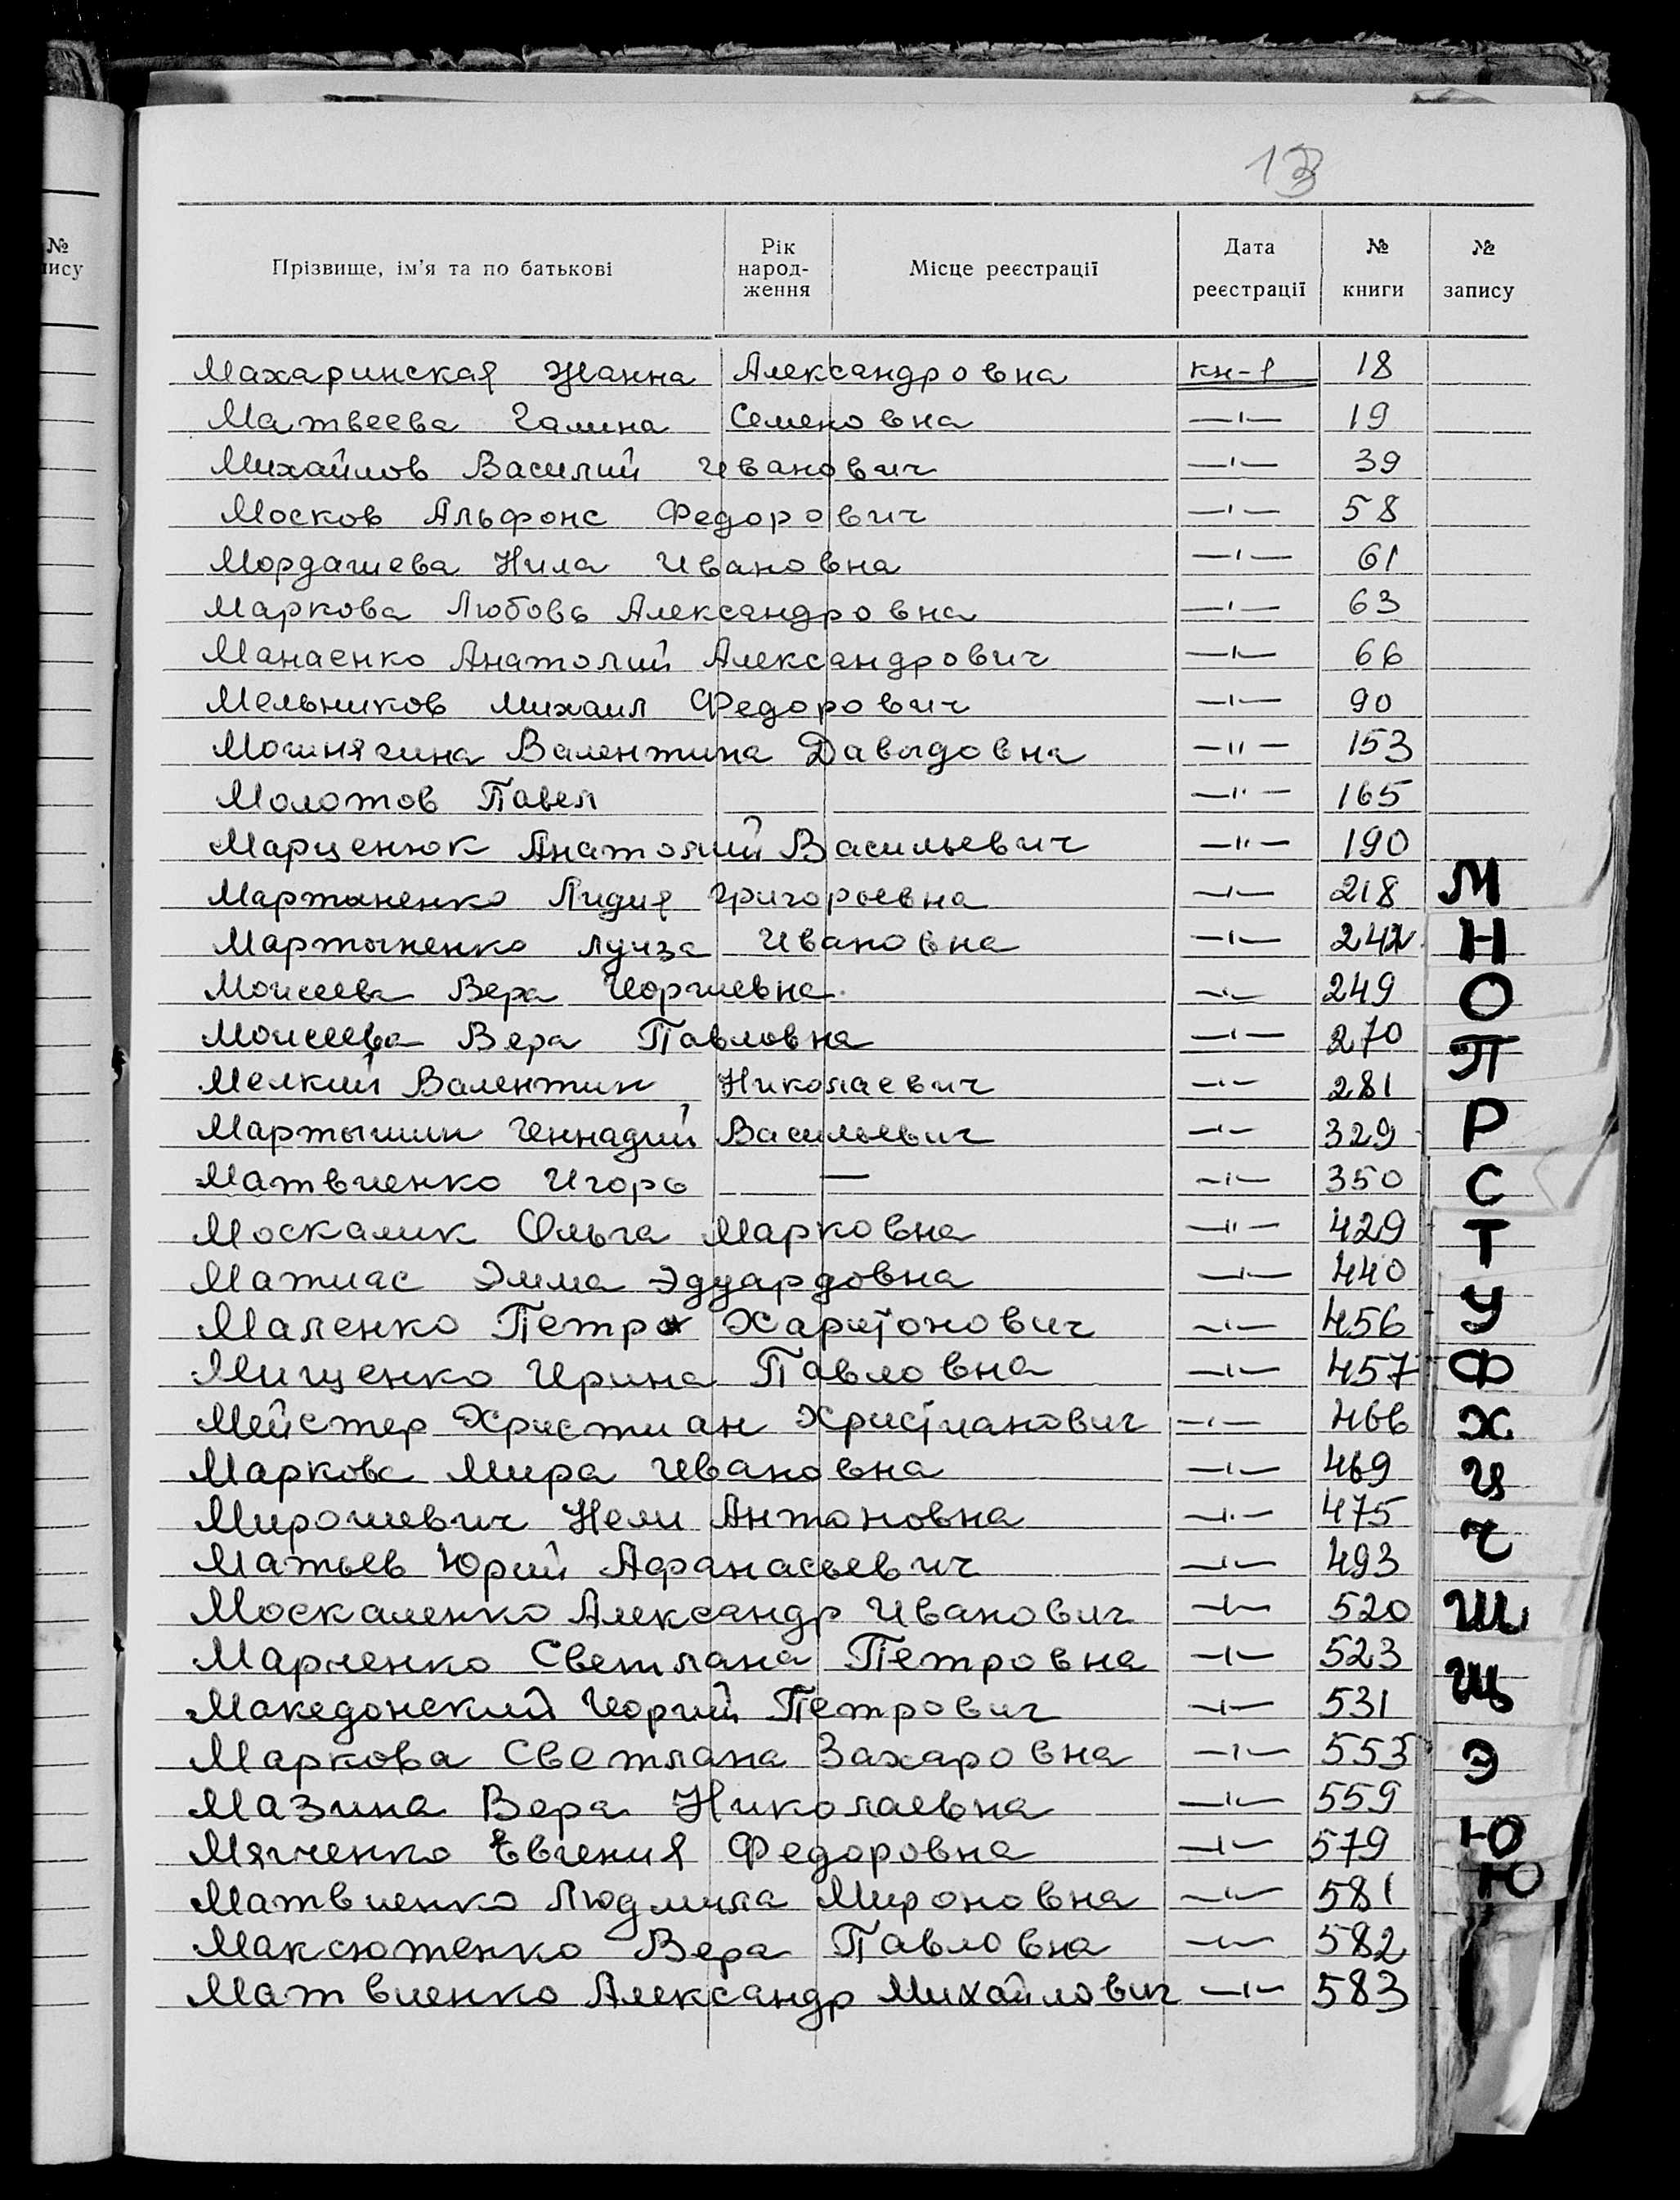 13
№
пису
Прізвище, ім'я та по батькові Рік народ-ження Місце реєстрації Дата реєстрації № книги № запису
Махаринская Жанна Александровна кн-1 18
Матвеева Галина Семеновна —"— 19
Михайлов Василий Иванович —"— 39
Москов Альфонс Федорович —"— 58
Мордашева Нила Ивановна —"— 61
Маркова Любовь Александровна —"— 63
Манаенко Анатолий Александрович —"— 66
Мельников Михаил Федорович —"— 90
Мошнягина Валентина Давыдовна —"— 153
Молотов Павел —"— 165
Марценюк Анатолий Васильевич —"— 190
Мартыненко Лидия Григорьевна —"— 218
Мартыненко Луиза Ивановна —"— 242
Моисеева Вера Георгиевна —"— 249
Моисеева Вера Павловна —"— 270
Мелкий Валентин Николаевич —"— 281
Мартышин Геннадий Васильевич —"— 329
Матвиенко Игорь — —"— 350
Москалик Ольга Марковна —"— 429
Матиас Эмма Эдуардовна —"— 440
Маленко Петр Харитонович —"— 456
Мищенко Ирина Павловна —"— 457
Мейстер Християн Християнович —"— 466
Маркова Мира Ивановна —"— 469
Мирошевич Нели Антоновна —"— 475
Матьев Юрий Афанасьевич —"— 493
Москаленко Александр Иванович —"— 520
Марченко Светлана Петровна —"— 523
Македонский Георгий Петрович —"— 531
Маркова Светлана Захаровна —"— 553
Мазина Вера Николаевна —"— 559
Мягченко Евгения Федоровна —"— 579
Матвиенко Людмила Мироновна —"— 581
Максютенко Вера Павловна —"— 582
Матвиенко Александр Михайлович —"— 583
М
Н
О
П
Р
С
Т
У
Ф
Х
Ц
Ч
Ш
Щ
Э
Ю
Ю